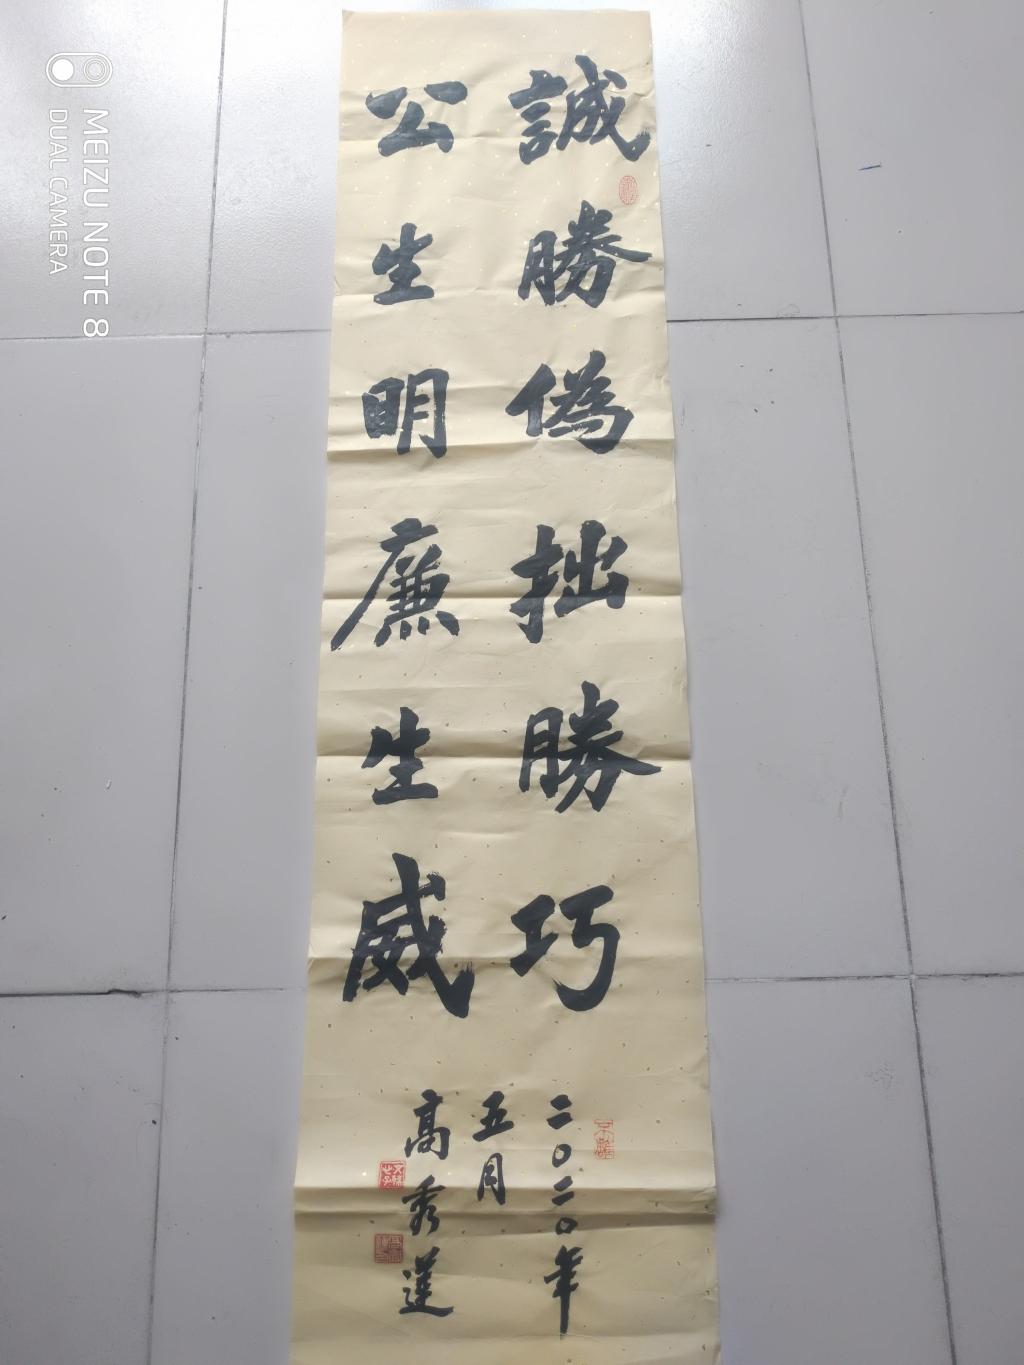 誠勝偽拙勝巧
公生明廉生威
二〇二〇年
五月
高秀蓮
MEIZU NOTE 8
DUAL CAMERA